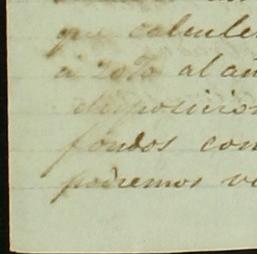 que calcule
á 20% al añ
disposicion
fondos con
podremos v